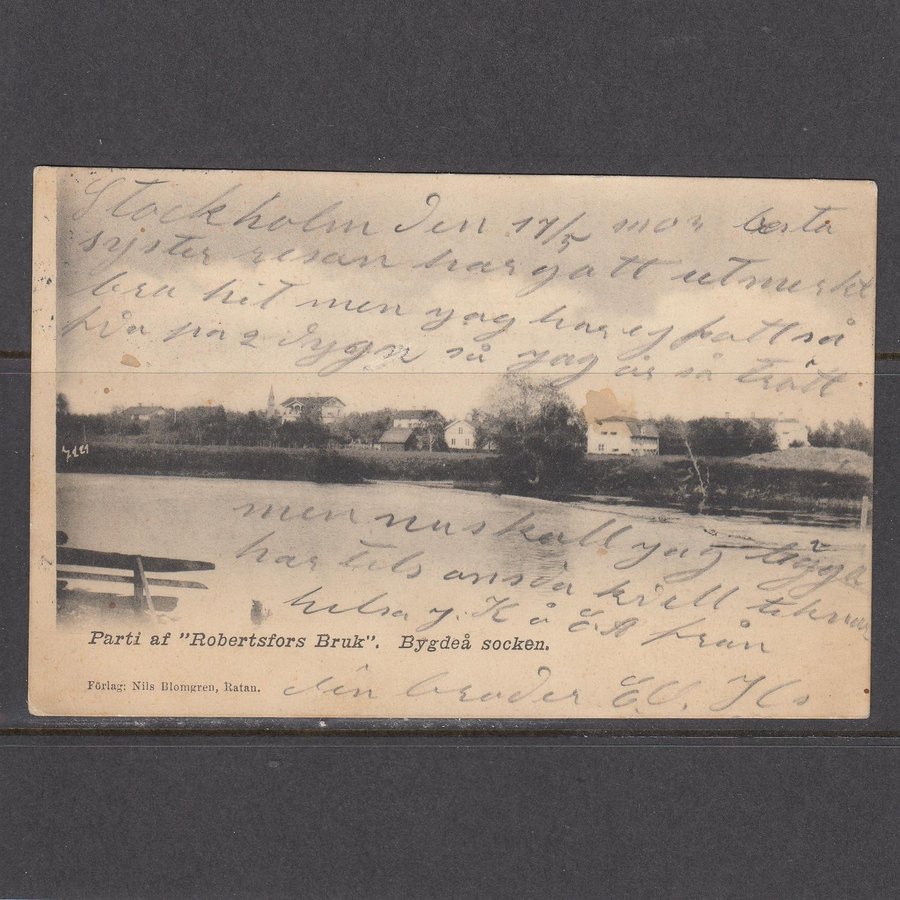 Stockholm den 17/5 1903 bästa
syster resan har gott utmerkt
bra hit men yag har ej fått så
på 2 dygn så yag är så trött
men nu skall yag
har tils kvell
helsa y. K å från
din broder
Parti af "Robertsfors Bruk". Bygdeå socken.
Förlag: Nils Blomgren, Ratan.